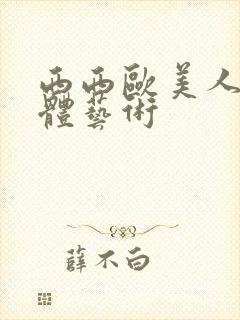 西西歐美人
體藝術
薛不白